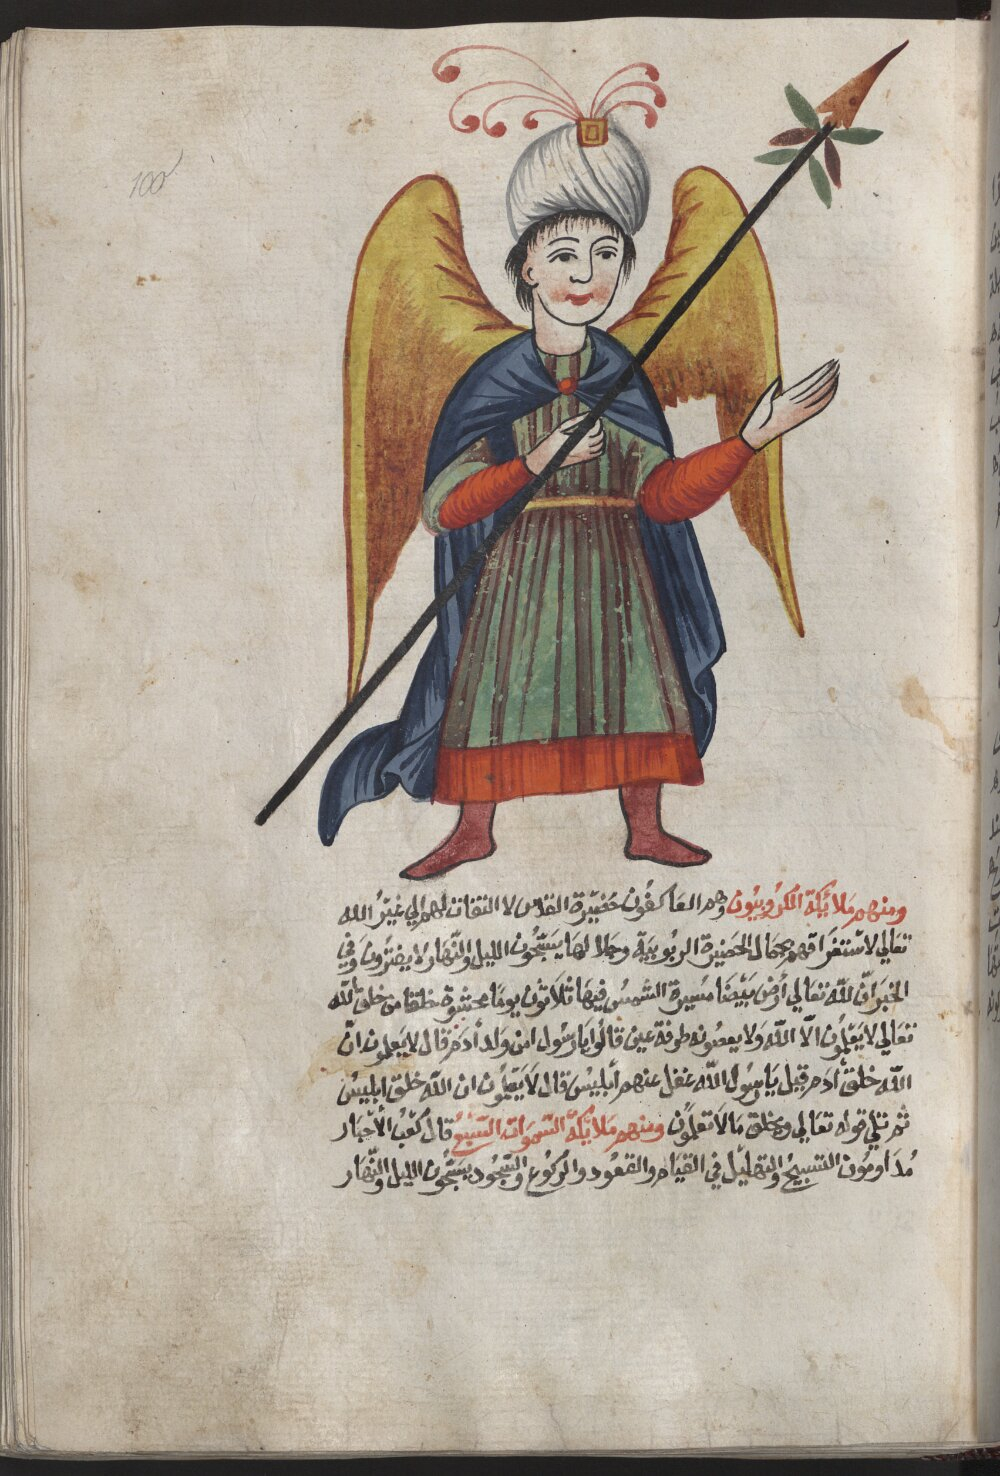 100
ومنهم ملائكة الكروبيون وهم العاكفون حضيرة القدس لا التفات لهم الي غير الله
تعالي لاستغراقهم بجمال الحضيرة الربوبية وجلالها يسبحون الليل والنهار لا يفترون وفي
الخبر ان لله تعالي ارض بيضا مسيرة الشمس فيها ثلاثون يوما محشوة خلقا من خلق الله
تعالي لا يعلمون الا الله ولا يعصونه طرفة عين قالوا يا رسول امن ولد أدم قال لا يعلمون ان
الله خلق أدم قيل يا رسول الله غفل عنهم أبليس قال لا يعلمون ان الله خلق ابليس
ثم تلي قوله تعالي ويخلق ما لا تعلمون ومنهم ملائكة السموات السبع قال كعب الأحبار
مداومون التسبيح والتهليل في القيام والقعود والركوع والسجود يسبحون الليل والنهار